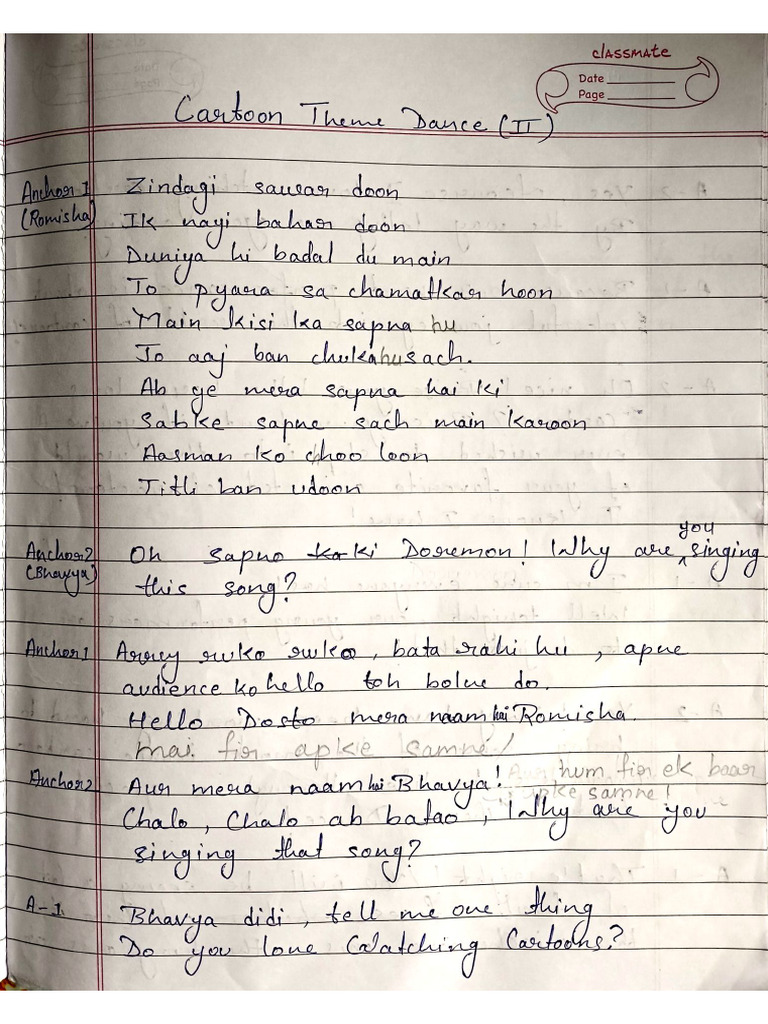 classmate
Date
Page
Cartoon Theme Dance (II)
Anchor 1 Zindagi sawar doon
(Romisha) Ik nayi bahar doon
Duniya hi badal du main
To pyara sa chamatkar hoon
Main kisi ka sapna hu
Jo aaj ban chuka hu sach.
Ab ye mera sapna hai ki
Sabke sapne sach main karoon
Aasman ko choo loon
Titli ban udoon
Anchor 2 Oh sapno ka ki Doremon! Why are you singing
(Bhavya) this song?
Anchor 1 Arrey ruko ruko, bata rahi hu, apne
audience ko hello toh bolne do.
Hello Dosto mera naam hai Romisha.
mai fir apke samne!
Anchor 2 Aur mera naam hai Bhavya! Aur hum fir ek baar
apke samne!
Chalo, Chalo ab batao, Why are you
singing that song?
A-1. Bhavya didi, tell me one thing
Do you love Watching Cartoons?